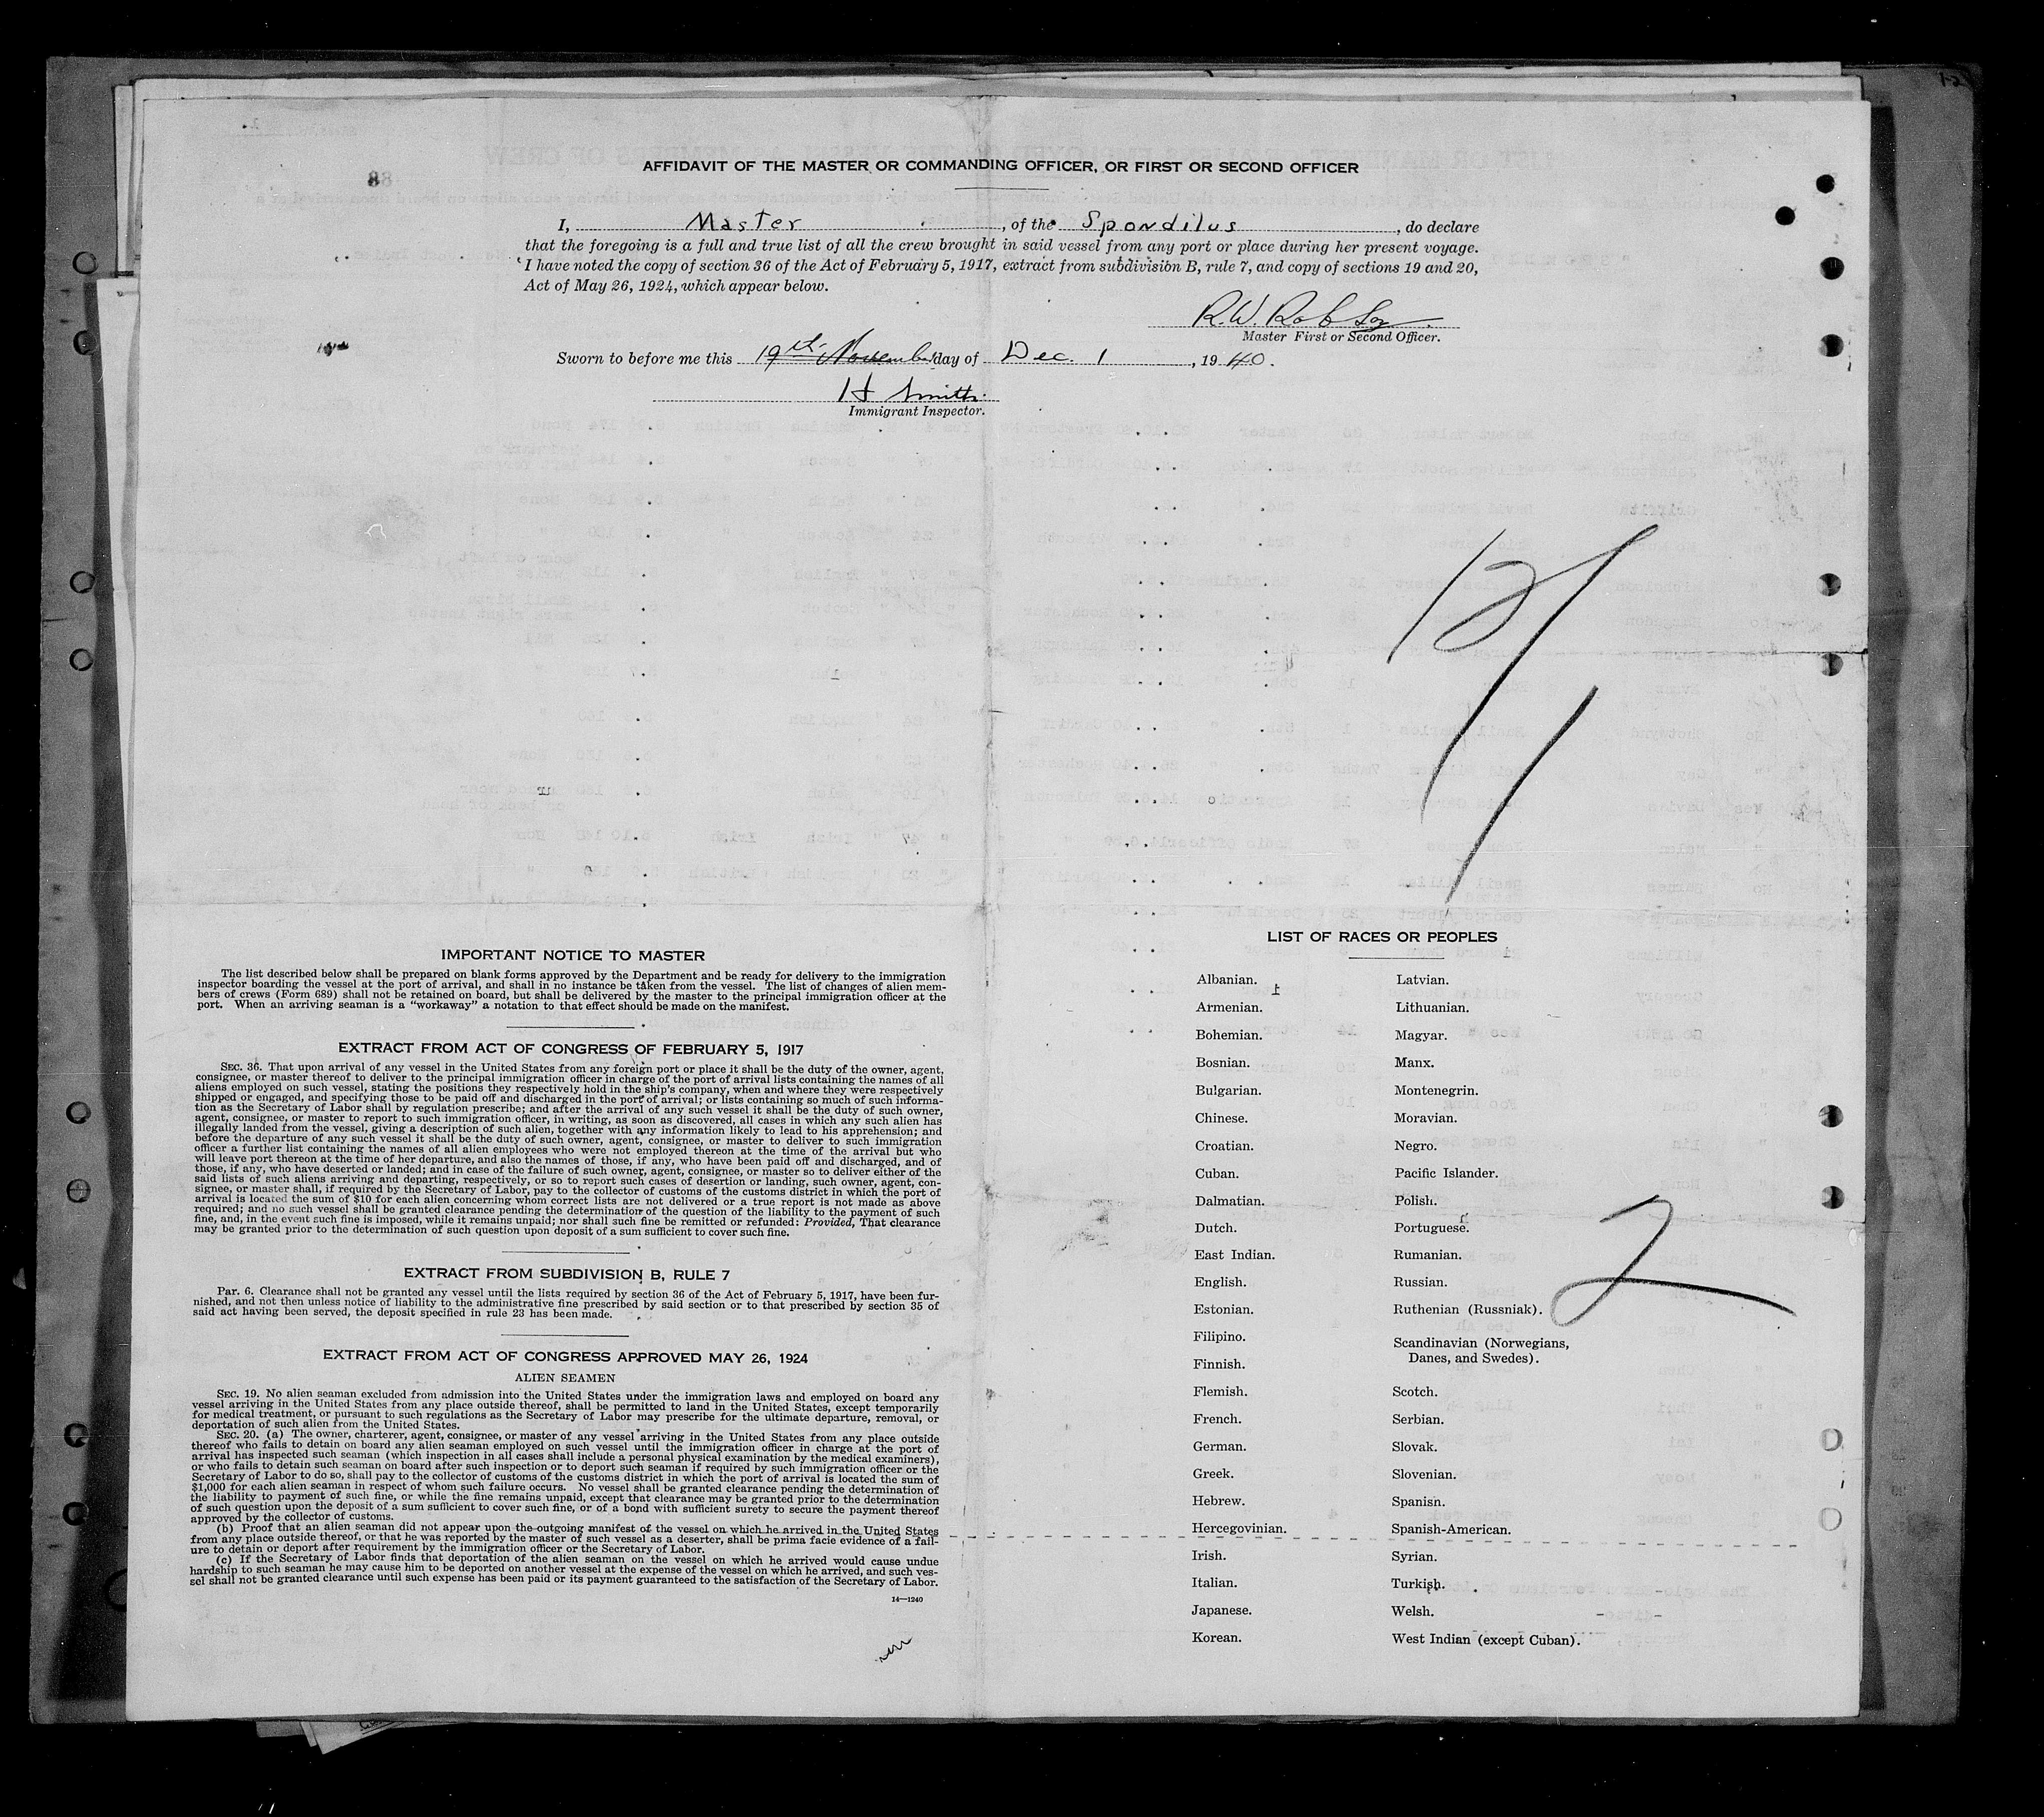 AFFIDAVIT OF THE MASTER OR COMMANDING OFFICER, OR FIRST OR SECOND OFFICER
I, Master, of the Spondilus, do declare
that the foregoing is a full and true list of all the crew brought in said vessel from any port or place during her present voyage.
I have noted the copy of section 36 of the Act of February 5, 1917, extract from subdivision B, rule 7, and copy of sections 19 and 20,
Act of May 26, 1924, which appear below.
R.W. Robson
Master First or Second Officer.
Sworn to before me this 19th November day of Dec. 1, 1940.
H Smith
Immigrant Inspector.
12/1/
IMPORTANT NOTICE TO MASTER
The list described below shall be prepared on blank forms approved by the Department and be ready for delivery to the immigration
inspector boarding the vessel at the port of arrival, and shall in no instance be taken from the vessel. The list of changes of alien mem-
bers of crews (Form 689) shall not be retained on board, but shall be delivered by the master to the principal immigration officer at the
port. When an arriving seaman is a "workaway" a notation to that effect should be made on the manifest.
EXTRACT FROM ACT OF CONGRESS OF FEBRUARY 5, 1917
SEC. 36. That upon arrival of any vessel in the United States from any foreign port or place it shall be the duty of the owner, agent,
consignee, or master thereof to deliver to the principal immigration officer in charge of the port of arrival lists containing the names of all
aliens employed on such vessel, stating the positions they respectively hold in the ship's company, when and where they were respectively
shipped or engaged, and specifying those to be paid off and discharged in the port of arrival; or lists containing so much of such informa-
tion as the Secretary of Labor shall by regulation prescribe; and after the arrival of any such vessel it shall be the duty of such owner,
agent, consignee, or master to report to such immigration officer, in writing, as soon as discovered, all cases in which any such alien has
illegally landed from the vessel, giving a description of such alien, together with any information likely to lead to his apprehension; and
before the departure of any such vessel it shall be the duty of such owner, agent, consignee, or master to deliver to such immigration
officer a further list containing the names of all alien employees who were not employed thereon at the time of the arrival but who
will leave port thereon at the time of her departure, and also the names of those, if any, who have been paid off and discharged, and of
those, if any, who have deserted or landed; and in case of the failure of such owner, agent, consignee, or master so to deliver either of the
said lists of such aliens arriving and departing, respectively, or so to report such cases of desertion or landing, such owner, agent, con-
signee, or master shall, if required by the Secretary of Labor, pay to the collector of customs of the customs district in which the port of
arrival is located the sum of $10 for each alien concerning whom correct lists are not delivered or a true report is not made as above
required; and no such vessel shall be granted clearance pending the determination of the question of the liability to the payment of such
fine, and, in the event such fine is imposed, while it remains unpaid; nor shall such fine be remitted or refunded: Provided, That clearance
may be granted prior to the determination of such question upon deposit of a sum sufficient to cover such fine.
EXTRACT FROM SUBDIVISION B, RULE 7
Par. 6. Clearance shall not be granted any vessel until the lists required by section 36 of the Act of February 5, 1917, have been fur-
nished, and not then unless notice of liability to the administrative fine prescribed by said section or to that prescribed by section 35 of
said act having been served, the deposit specified in rule 23 has been made.
EXTRACT FROM ACT OF CONGRESS APPROVED MAY 26, 1924
ALIEN SEAMEN
SEC. 19. No alien seaman excluded from admission into the United States under the immigration laws and employed on board any
vessel arriving in the United States from any place outside thereof, shall be permitted to land in the United States, except temporarily
for medical treatment, or pursuant to such regulations as the Secretary of Labor may prescribe for the ultimate departure, removal, or
deportation of such alien from the United States.
SEC. 20. (a) The owner, charterer, agent, consignee, or master of any vessel arriving in the United States from any place outside
thereof who fails to detain on board any alien seaman employed on such vessel until the immigration officer in charge at the port of
arrival has inspected such seaman (which inspection in all cases shall include a personal physical examination by the medical examiners),
or who fails to detain such seaman on board after such inspection or to deport such seaman if required by such immigration officer or the
Secretary of Labor to do so, shall pay to the collector of customs of the customs district in which the port of arrival is located the sum of
$1,000 for each alien seaman in respect of whom such failure occurs. No vessel shall be granted clearance pending the determination of
the liability to payment of such fine, or while the fine remains unpaid, except that clearance may be granted prior to the determination
of such question upon the deposit of a sum sufficient to cover such fine, or of a bond with sufficient surety to secure the payment thereof
approved by the collector of customs.
(b) Proof that an alien seaman did not appear upon the outgoing manifest of the vessel on which he arrived in the United States
from any place outside thereof, or that he was reported by the master of such vessel as a deserter, shall be prima facie evidence of a fail-
ure to detain or deport after requirement by the immigration officer or the Secretary of Labor.
(c) If the Secretary of Labor finds that deportation of the alien seaman on the vessel on which he arrived would cause undue
hardship to such seaman he may cause him to be deported on another vessel at the expense of the vessel on which he arrived, and such ves-
sel shall not be granted clearance until such expense has been paid or its payment guaranteed to the satisfaction of the Secretary of Labor.
14—1240
LIST OF RACES OR PEOPLES
Albanian.
Armenian.
Bohemian.
Bosnian.
Bulgarian.
Chinese.
Croatian.
Cuban.
Dalmatian.
Dutch.
East Indian.
English.
Estonian.
Filipino.
Finnish.
Flemish.
French.
German.
Greek.
Hebrew.
Hercegovinian.
Irish.
Italian.
Japanese.
Korean.
Latvian.
Lithuanian.
Magyar.
Manx.
Montenegrin.
Moravian.
Negro.
Pacific Islander.
Polish.
Portuguese.
Rumanian.
Russian.
Ruthenian (Russniak).
Scandinavian (Norwegians,
Danes, and Swedes).
Scotch.
Serbian.
Slovak.
Slovenian.
Spanish.
Spanish-American.
Syrian.
Turkish.
Welsh.
West Indian (except Cuban).
2